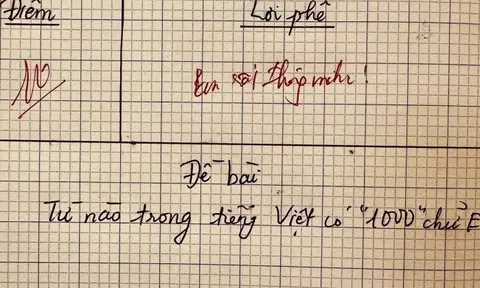 Điểm
Lời phê
10
Em rất thông minh !
Đề bài
Từ nào trong tiếng Việt có "1000" chữ E